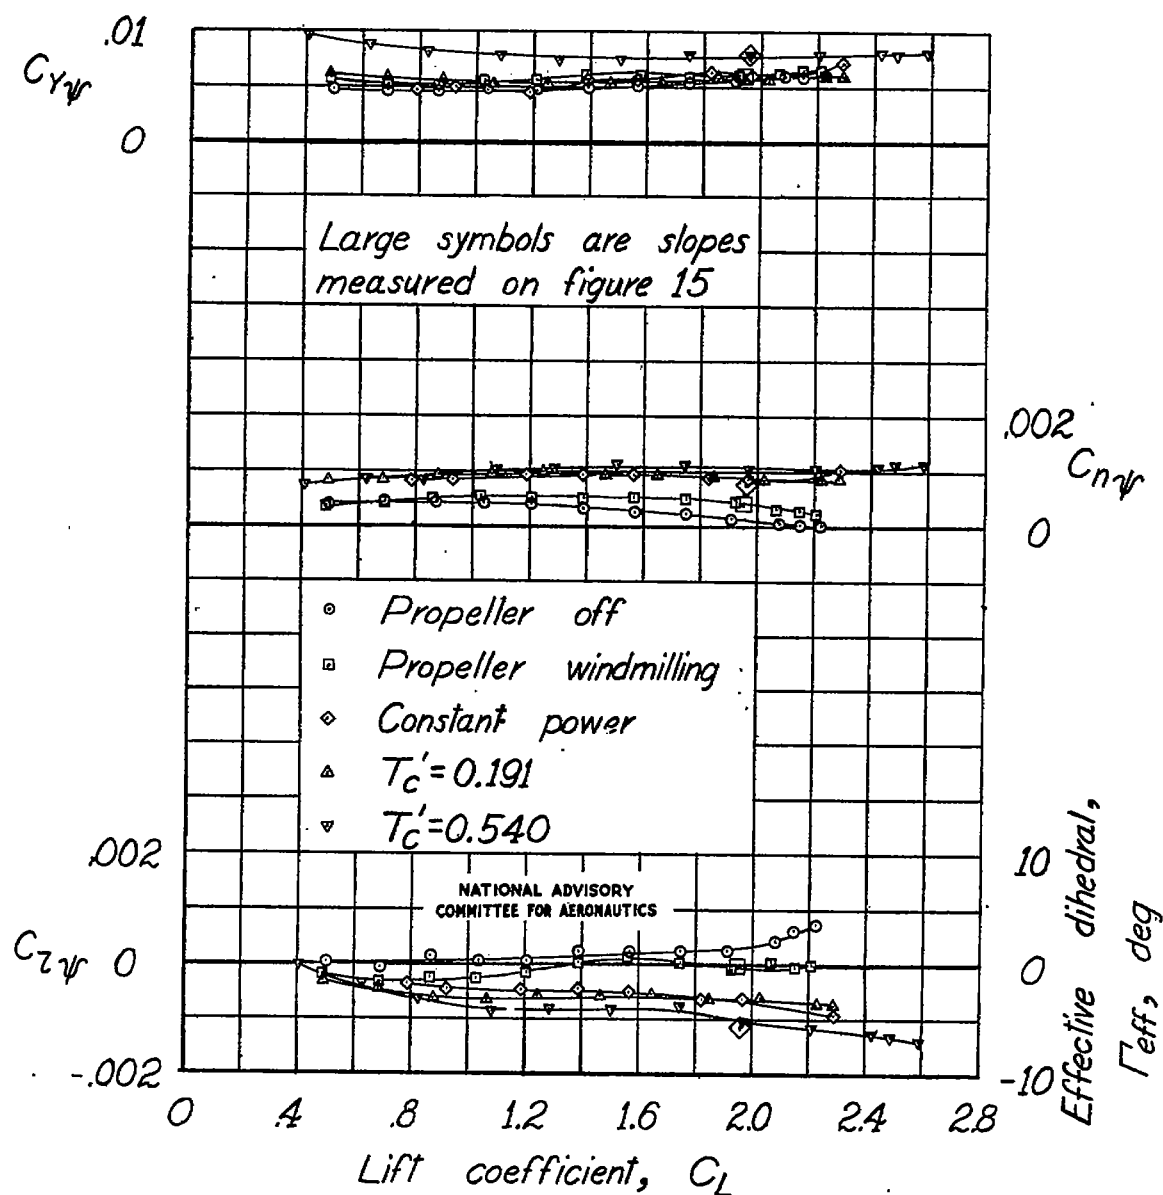 .01
C_Yψ
0
Large symbols are slopes
measured on figure 15
.002
C_nψ
0
Propeller off
Propeller windmilling
Constant power
T_c'=0.191
T_c'=0.540
.002
C_lψ 0
-.002
NATIONAL ADVISORY
COMMITTEE FOR AERONAUTICS
10
0
-10
Effective dihedral,
Γeff, deg
0 .4 .8 1.2 1.6 2.0 2.4 2.8
Lift coefficient, C_L